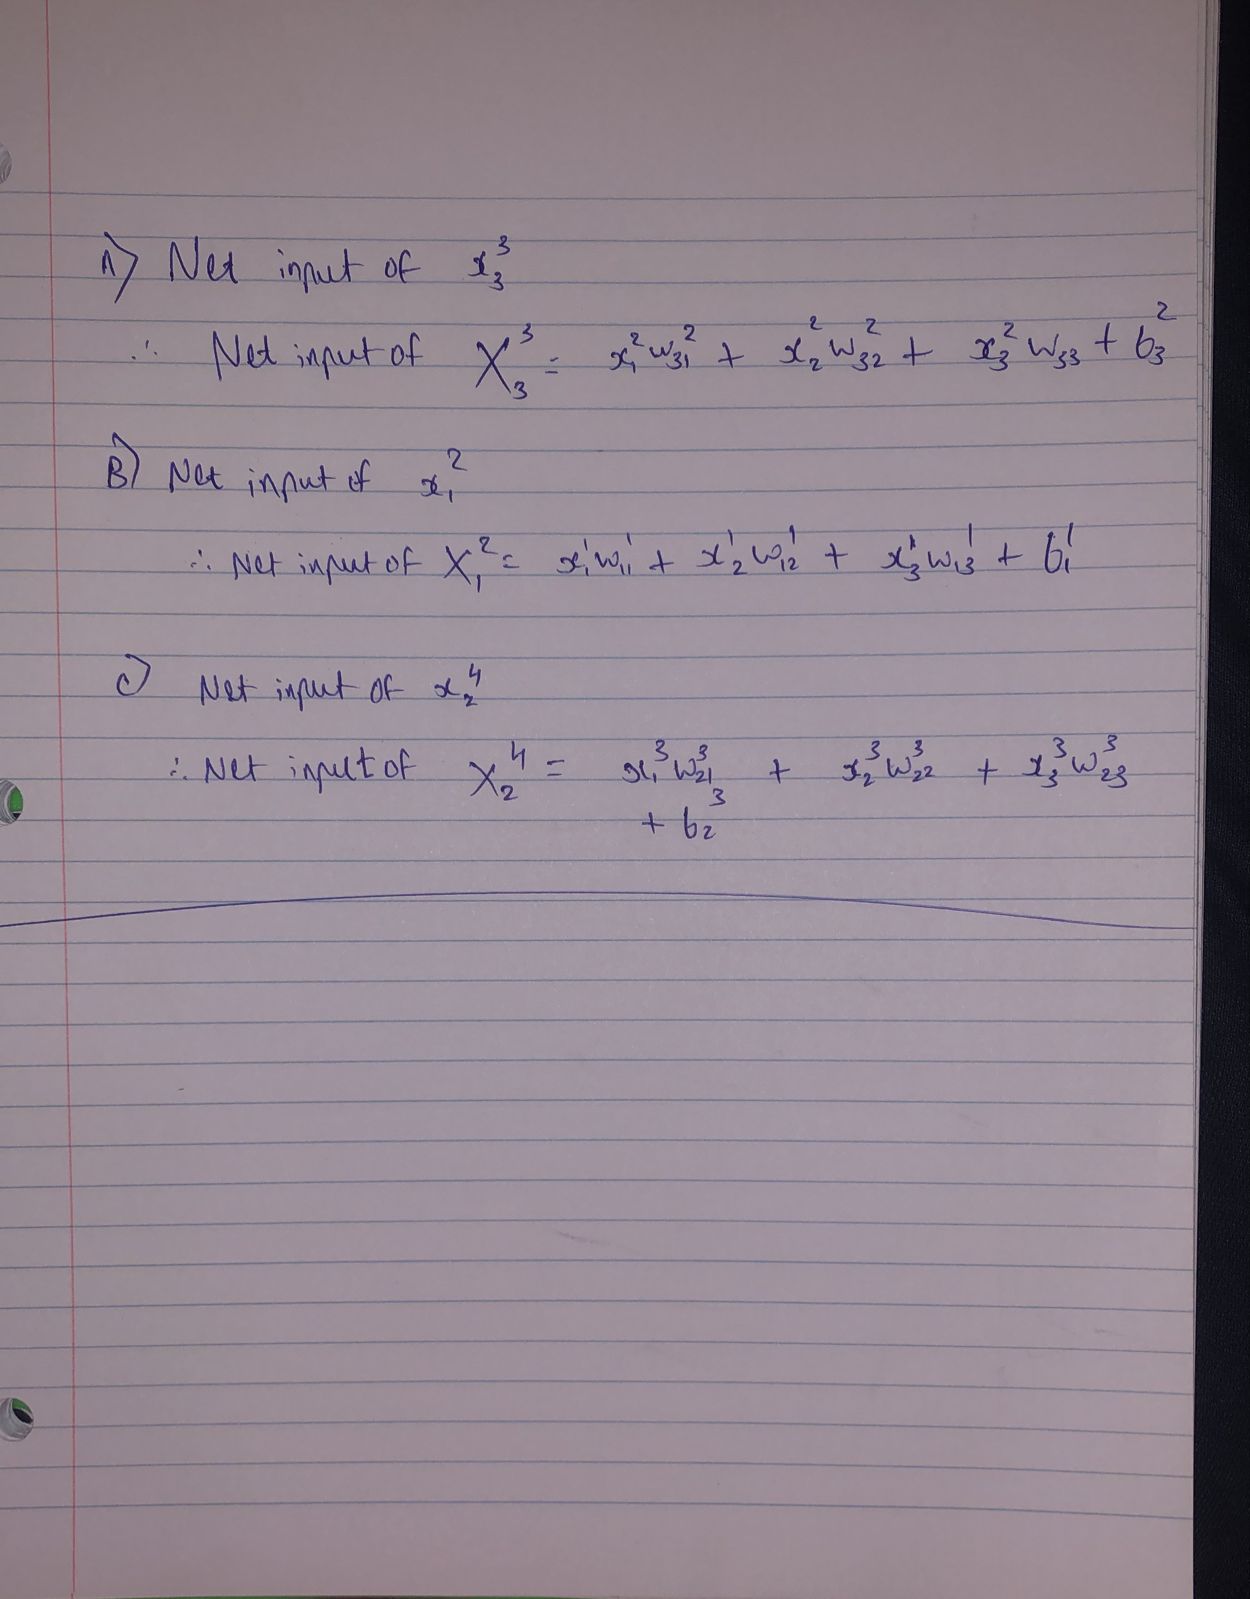 A) Net input of x₃³
∴ Net input of X₃³ = x₁²w₃₁² + x₂²w₃₂² + x₃²w₃₃ + b₃²
B) Net input of x₁²
∴ Net input of X₁² = x₁¹w₁₁¹ + x₂¹w₁₂¹ + x₃¹w₁₃¹ + b₁¹
C) Net input of x₂⁴
∴ Net input of X₂⁴ = x₁³w₂₁³ + x₂³w₂₂³ + x₃³w₂₃³
+ b₂³